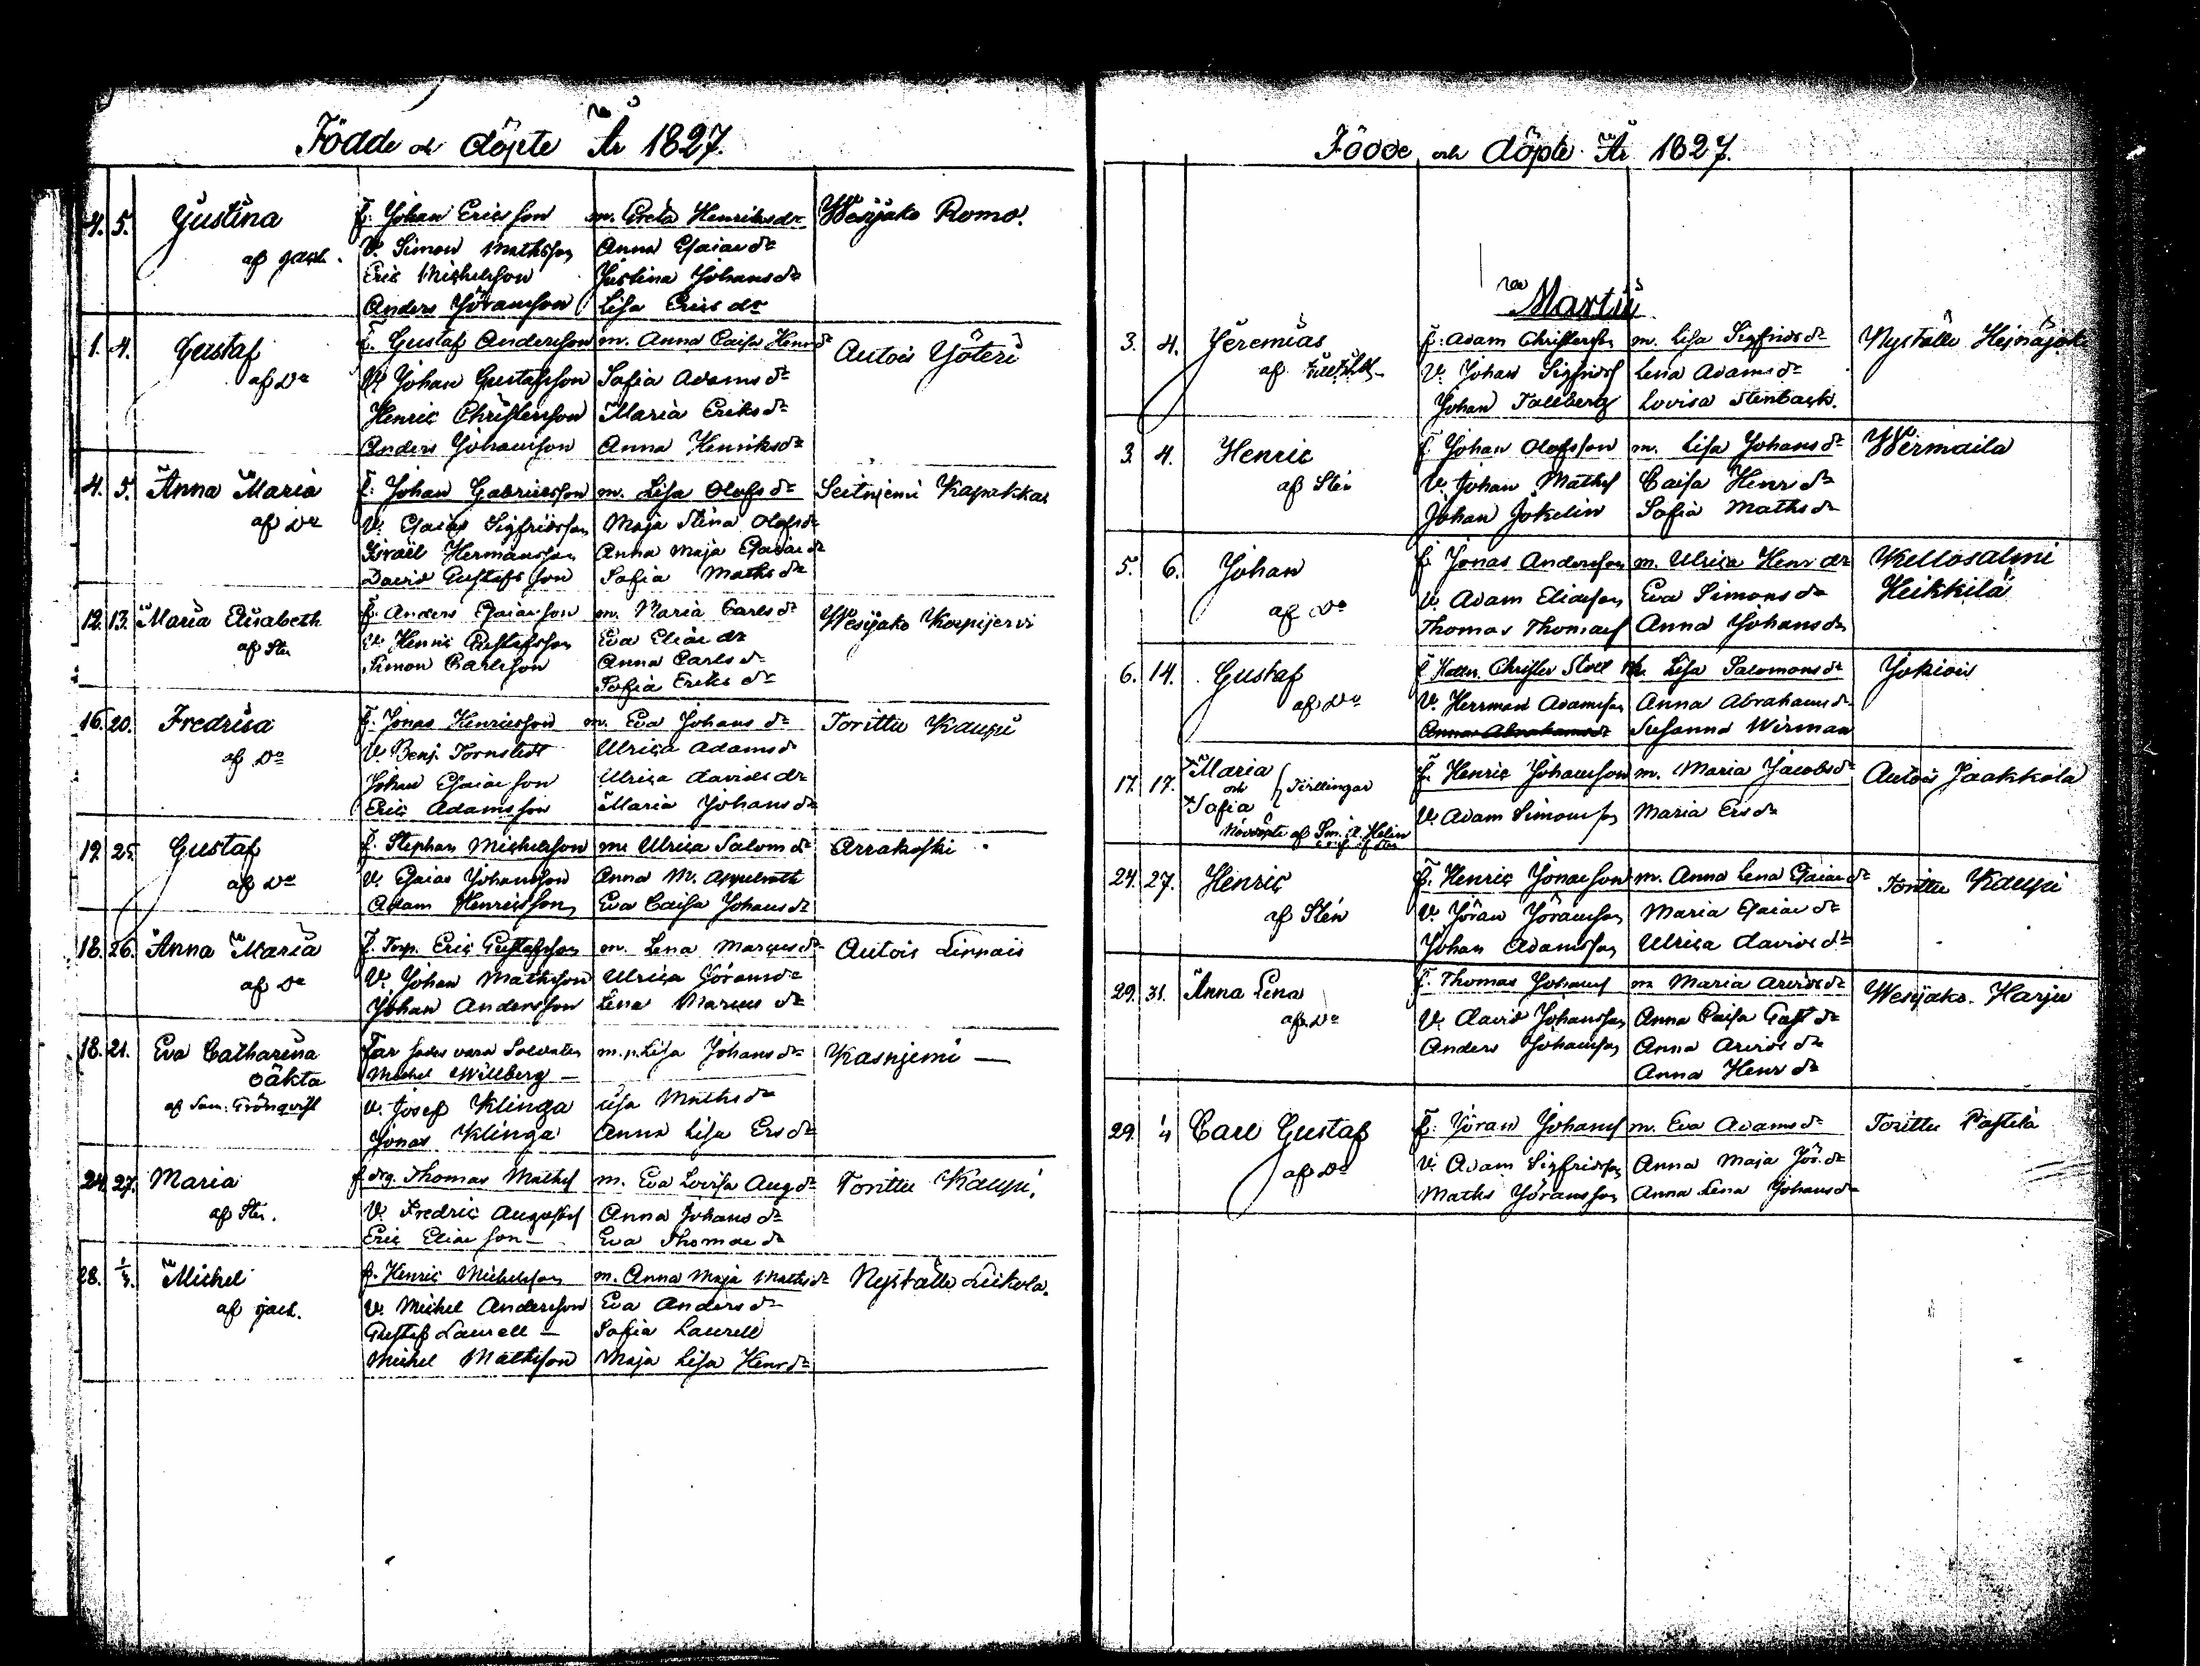 Födde och döpte År 1827.
4. 5. Justina f. Johan Ericsson m. Greta Henriksdr Wesijako Romo.
af V. Simon Mathsson Anna Esaiaedr
Eric Michelsson Justina Johansdr
Anders Jöransson Lisa Ericsdr
1. 4. Gustaf f. Gustaf Andersson m. Anna Caisa Henrdr Autois Yöteri
af Do V. Johan Gustafsson Sofia Adamsdr
Henric Christersson Maria Eriksdr
Anders Johansson Anna Henriksdr
4. 5. Anna Maria f. Johan Gabrielsson m. Lisa Olofsdr Seitniemi Kapakkas
af Do V. Esaias Sigfridsson Maja Stina Olofsdr
Israël Hermansson Anna Maja Esaiaedr
David Gustafsson Sofia Mathsdr
12. 13. Maria Elisabeth f. Anders Esaiasson m. Maria Carlsdr Wesijako Korpijervi
af Sten V. Henric Gustafsson Eva Eliaedr
Simon Carlsson Anna Carlsdr
Sofia Eriksdr
16. 20. Fredrica f. Jonas Henricsson m. Eva Johansdr Torittu Kaupi
af Do V. Benj. Tornstedt Ulrica Adamsdr
Johan Esaiasson Ulrica Davidsdr
Eric Adamsson Maria Johansdr
19. 25. Gustaf f. Stephan Michelsson m. Ulrica Salomdr Arrakoski
af Do V. Esaias Johansson Anna M. Appelroth
Adam Henricsson Eva Caisa Johansdr
18. 26. Anna Maria f. Torp. Eric Gustafsson m. Lena Marcusdr Autois Linnais
af Do V. Johan Mathsson Ulrica Jöransdr
Johan Andersson Lena Marcusdr
18. 21. Eva Catharina Far sades vara Soldaten m. p. Lisa Johansdr Kasniemi —
oäkta Michel Willberg —
af Sam. Grönqvist V. Josef Klinga Lisa Mathsdr
Jonas Klinga Anna Lisa Ersdr
24. 27. Maria f. drg. Thomas Mathss m. Eva Lovisa Augdr Torittu Kaupi.
af Sten. V. Fredric Augustss Anna Johansdr
Eric Eliasson — Eva Thomaedr
28. 1/3. Michel f. Henric Michelsson m. Anna Maja Mathsdr Nyställe Liikola.
af V. Michel Andersson Eva Andersdr
Gustaf Laurell — Sofia Laurell
Michel Mathsson Maja Lisa Henrdr
Födde och döpte År 1827.
Martii
3. 4. Jeremias f. Adam Christersson m. Lisa Sigfridsdr Nyställe Heinäjoki
af V. Johan Sigfridss Lena Adamsdr
Johan Tallberg Lovisa Stenback.
3. 4. Henric f. Johan Olofsson m. Lisa Johansdr Wermaila
af Sten V. Johan Mathss Caisa Henrdr
Johan Jokelin Sofia Mathsdr
5. 6. Johan f. Jonas Andersson m. Ulrica Henrdr Kellosalmi
Heikkilä
af Do V. Adam Eliasson Eva Simonsdr
Thomas Thomass Anna Johansdr
6. 14. Gustaf f. Christer Stoll m. Lisa Salomonsdr Jokiois
af Do V. Herrman Adamsson Anna Abrahamsdr
Anna Abrahamsdr Susanna Wirman
17. 17. Maria f. Henric Johansson m. Maria Jacobsdr Autois Jaakkola
och Tvillingar
Sofia V. Adam Simonsson Maria Ersdr
Nöddöpte af Sm. A. Helin
24. 27. Henric f. Henric Jonasson m. Anna Lena Esaiaedr Torittu Kaupi
af Sten V. Jöran Jöransson Maria Esaiaedr
Johan Adamsson Ulrica Davidsdr
29. 31. Anna Lena f. Thomas Johanss m. Maria Arvidsdr Wesijako Harju
af Do V. David Johansson Anna Caisa Gustdr
Anders Johansson Anna Arvidsdr
Anna Henrdr
29. 1/4 Carl Gustaf f. Jöran Johanss m. Eva Adamsdr Torittu Pastila
af Do V. Adam Sigfridsson Anna Maja Jör.dr
Maths Jöransson Anna Lena Johansdr